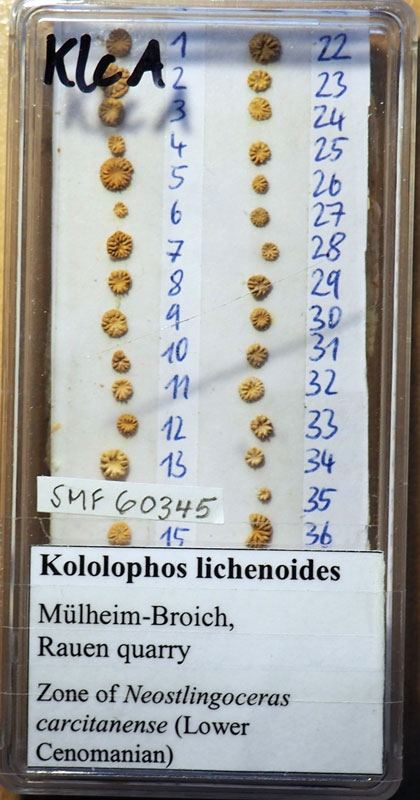 KlcA
1 22
2 23
3 24
4 25
5 26
6 27
7 28
8 29
9 30
10 31
11 32
12 33
13 34
SMF 60345 35
15 36
Kololophos lichenoides
Mülheim-Broich,
Rauen quarry
Zone of Neostlingoceras
carcitanense (Lower
Cenomanian)